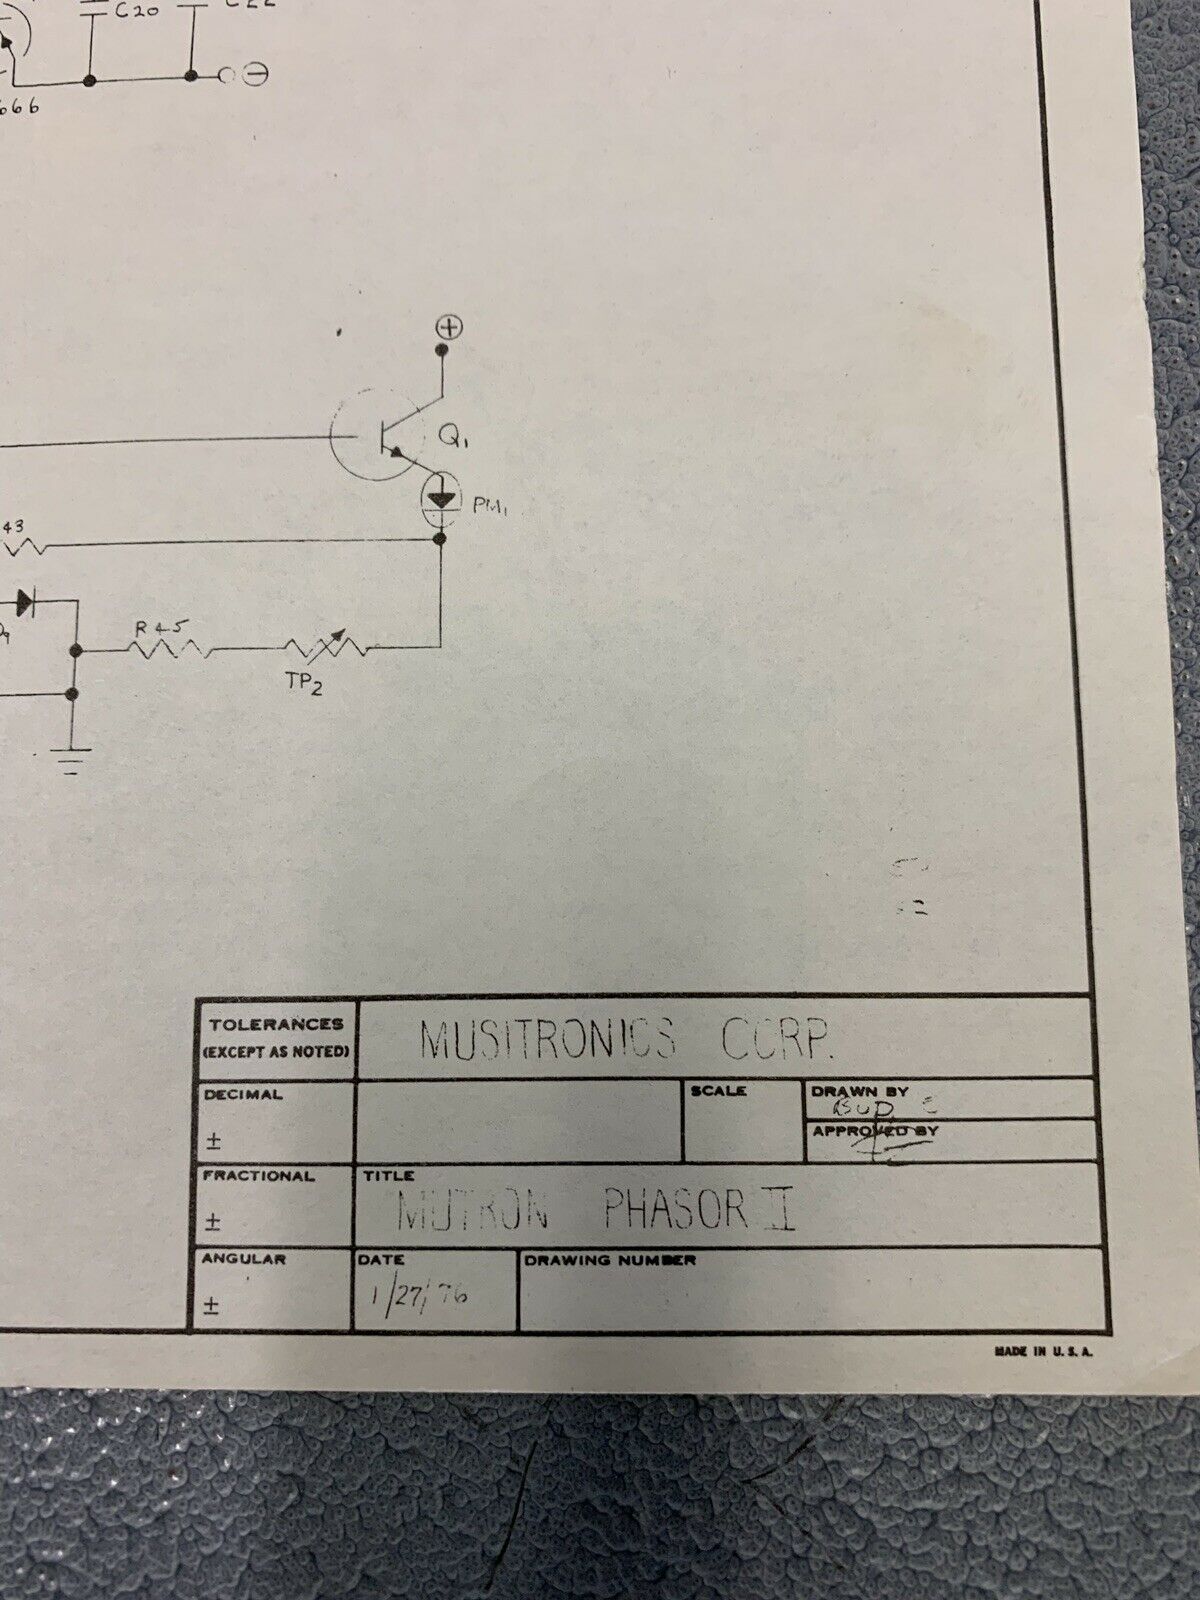 C20
C22
⊖
666
⊕
Q1
PM1
43
R45
TP2
TOLERANCES
(EXCEPT AS NOTED)
MUSITRONICS CORP.
DECIMAL
±
SCALE
DRAWN BY
APPROVED BY
FRACTIONAL
±
TITLE
MUTRON PHASOR II
ANGULAR
±
DATE
1/27/76
DRAWING NUMBER
MADE IN U.S.A.